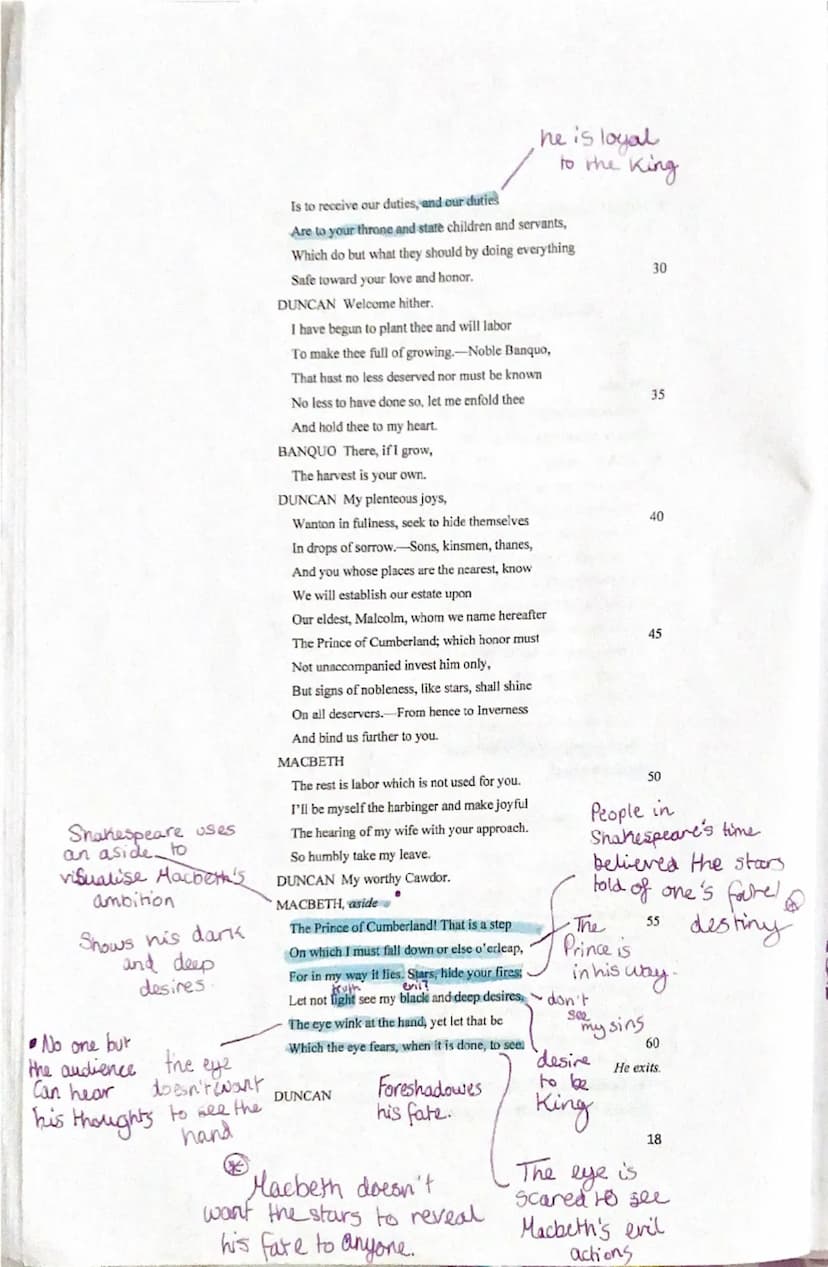 he is loyal
to the King
Is to receive our duties, and our duties
Are to your throne and state children and servants,
Which do but what they should by doing everything
Safe toward your love and honor.
30
DUNCAN Welcome hither.
I have begun to plant thee and will labor
To make thee full of growing.—Noble Banquo,
That hast no less deserved nor must be known
No less to have done so, let me enfold thee
35
And hold thee to my heart.
BANQUO There, if I grow,
The harvest is your own.
DUNCAN My plenteous joys,
Wanton in fullness, seek to hide themselves
40
In drops of sorrow.—Sons, kinsmen, thanes,
And you whose places are the nearest, know
We will establish our estate upon
Our eldest, Malcolm, whom we name hereafter
The Prince of Cumberland; which honor must
45
Not unaccompanied invest him only,
But signs of nobleness, like stars, shall shine
On all deservers.—From hence to Inverness
And bind us further to you.
MACBETH
The rest is labor which is not used for you.
50
I'll be myself the harbinger and make joyful
The hearing of my wife with your approach.
So humbly take my leave.
DUNCAN My worthy Cawdor.
MACBETH, aside
The Prince of Cumberland! That is a step
55
On which I must fall down or else o'erleap,
For in my way it lies. Stars, hide your fires;
truth
evil?
Let not light see my black and deep desires,
The eye wink at the hand, yet let that be
Which the eye fears, when it is done, to see.
60
He exits.
DUNCAN
18
Shakespeare uses
an aside to
visualise Macbeth's
ambition
Shows his dark
and deep
desires.
People in
Shakespeare's time
believed the stars
told of one's fate/
destiny
The
Prince is
in his way.
don't
see
my sins
desire
to be
King
No one but
the audience
Can hear
his thoughts
the eye
doesn't want
to see the
hand
Foreshadowes
his fate.
Macbeth doesn't
want the stars to reveal
his fate to anyone.
The eye is
scared to see
Macbeth's evil
actions